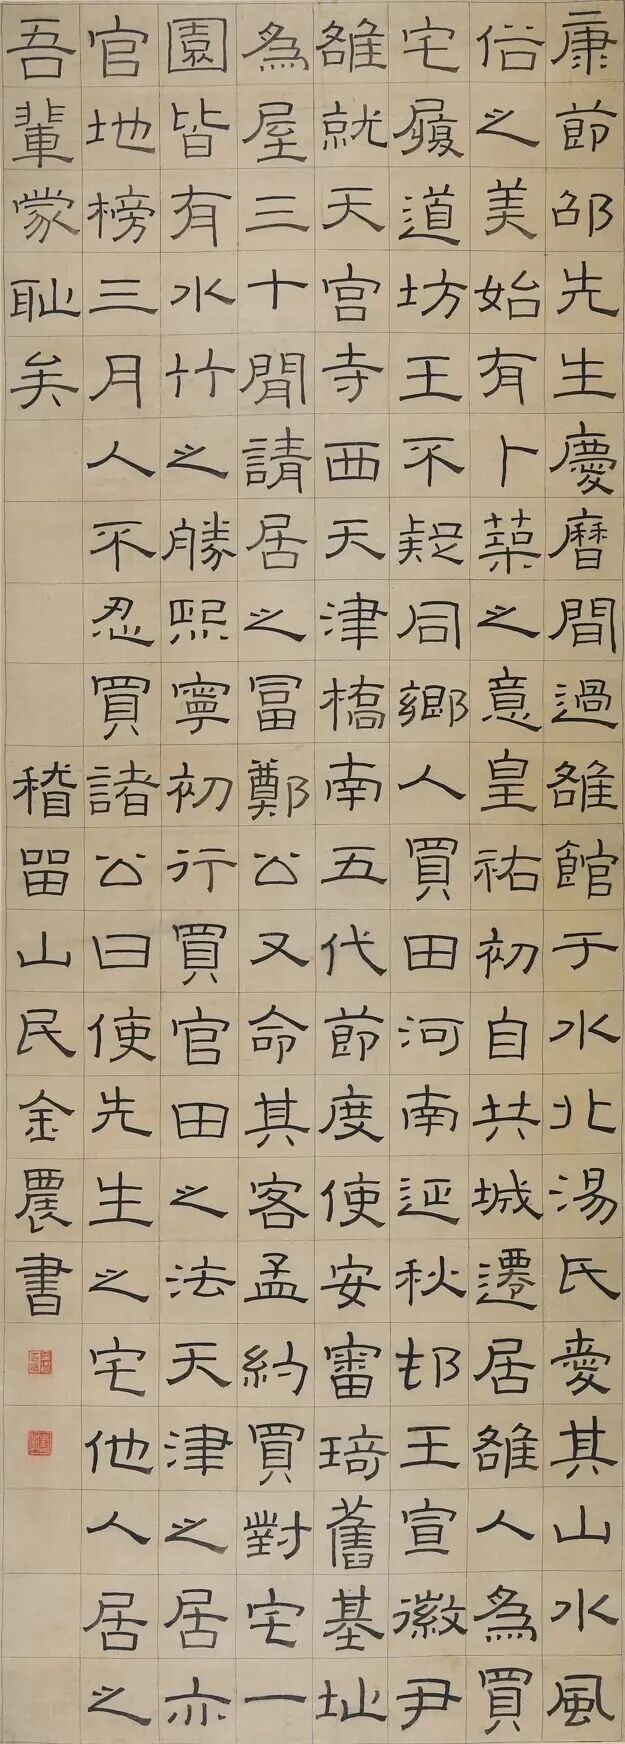 康節邵先生慶曆間過雒館于水北湯氏愛其山水風
俗之美始有卜築之意皇祐初自共城遷居雒人為買
宅履道坊王不疑同鄉人買田河南延秋邨王宣徽尹
雒就天宮寺西天津橋南五代節度使安審琦舊基址
為屋三十間請居之富鄭公又命其客孟約買對宅一
園皆有水竹之勝熙寧初行買官田之法天津之居亦
官地榜三月人不忍買諸公曰使先生之宅他人居之
吾輩蒙耻矣
稽留山民金農書